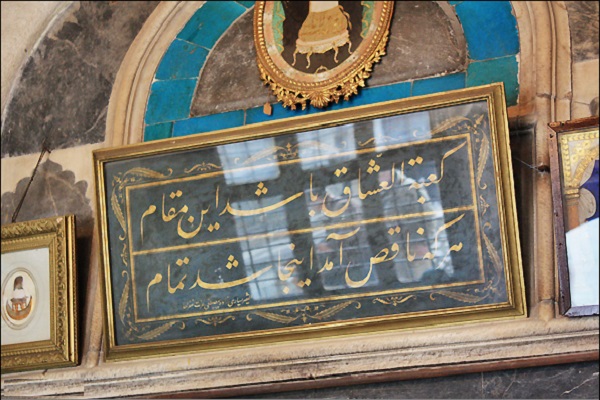 کعبة العشاق باشد این مقام
هر که ناقص آمد اینجا شد تمام